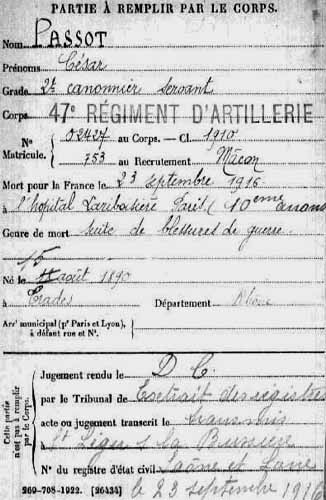 PARTIE À REMPLIR PAR LE CORPS.
Nom PASSOT
Prénoms César
Grade 2e canonnier servant
Corps 47e RÉGIMENT D'ARTILLERIE
N° 02427 au Corps. — Cl. 1910
Matricule. 753 au Recrutement Mâcon
Mort pour la France le 23 septembre 1916
à l'hopital Lariboisière Paris (10eme
Genre de mort suite de blessures de guerre
15
Né le août 1890
à Trades Département Rhône
Arrt municipal (pr Paris et Lyon),
à défaut rue et N°.
Cette partie n'est pas à remplir par le Corps.
Jugement rendu le D C.
par le Tribunal de Extrait des registres
acte ou jugement transcrit le transmis
St Léger s/ la Bussière
N° du registre d'état civil Saône et Loire
269-708-1922. [26434] le 23 septembre 1916